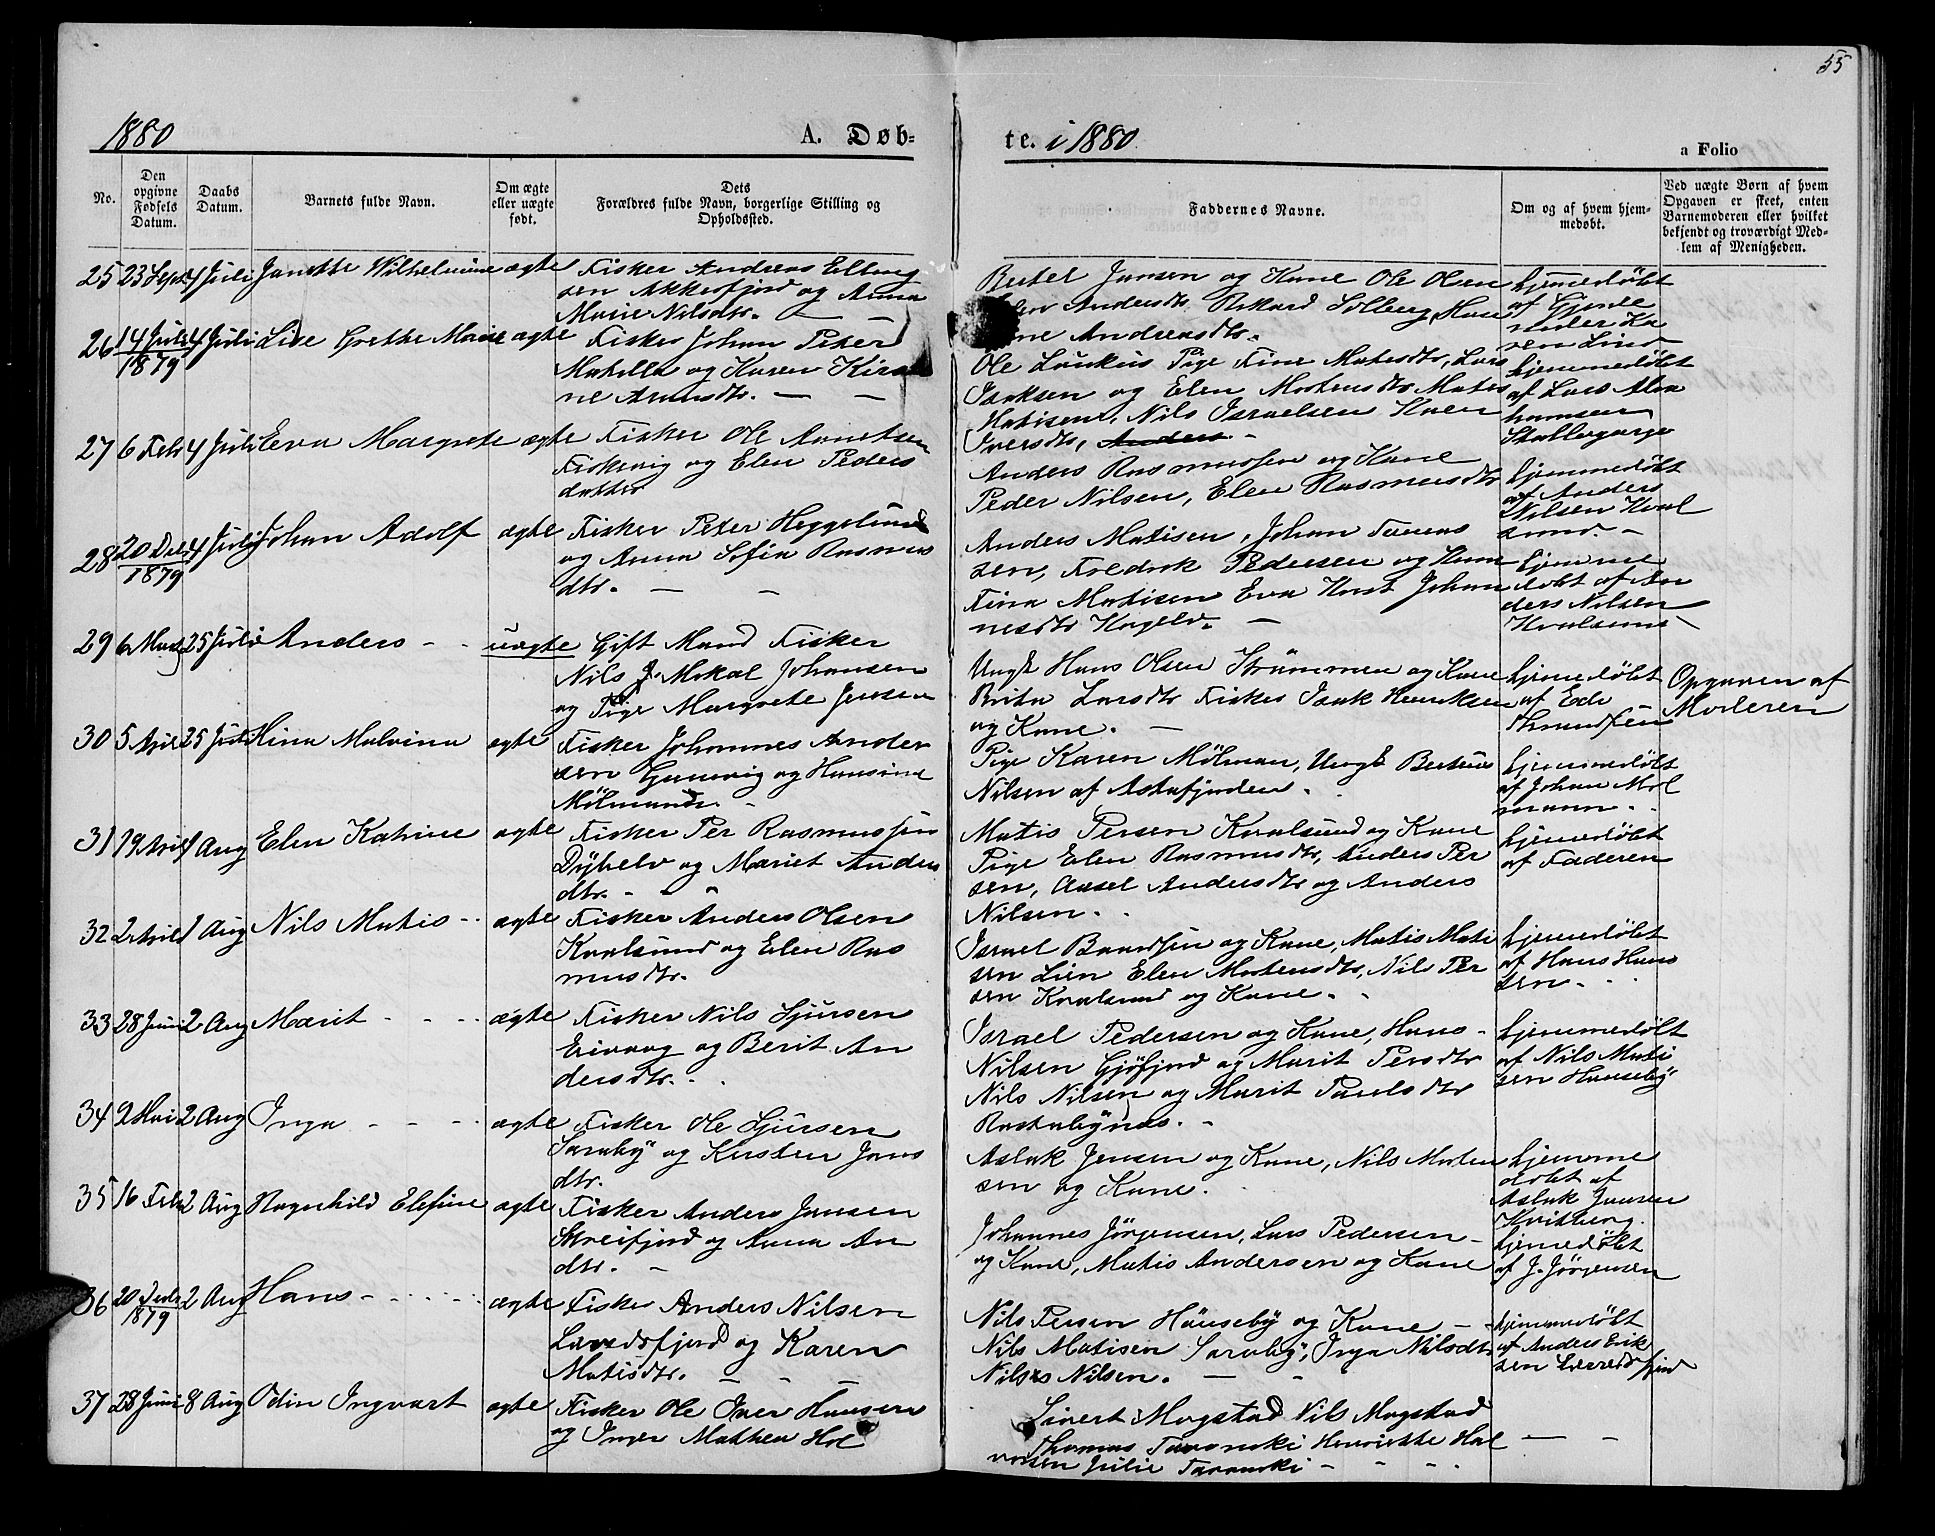 55
1880 A. Døb-
te. i 1880.
a Folio
No.
Den opgivne Fødsels Datum.
Daabs Datum.
Barnets fulde Navn.
Om ægte eller uægte født.
Dets Forældres fulde Navn, borgerlige Stilling og Opholdssted.
Faddernes Navne.
Om og af hvem hjem-
medøbt.
Ved uægte Børn af hvem
Opgaven er skeet, enten
Barnemoderen eller hvilket
bekjendt og troværdigt Med-
lem af Menigheden.
25 23 Sept 4 Juli Janette Wilhelmine ægte Fisker Andreas Elling
sen Akkarfjord og Anna
Marie Nilsdtr. — —
Bertel Jansen og Kone Ole Olsen
Andersdtr Rikard Solberg, Hase
Andreasdtr.
hjemmedøbt
af Gjorde
moder Ka
ren Lind
26 14 Juli 1879 4 Juli Lise Grethe Marie ægte Fisker Johan Peter
Mahella og Karen Kirsti
ne Amundtr. — —
Ole Laukus Pige Fine Matisdtr, Lars
Isaksen og Elen Mortensdtr Mates
Matisen, Nils Israelsen Karen
Iversdtr, Anders -
hjemmedøbt
af Lars Abra
hamsen
Stallogargo
27 6 Feb 4 Juli Eva Margrete ægte Fisker Ole Anretsen
Fiskevig og Elen Peders
datter
Anders Rasmussen og Kone
Peder Nilsen, Elen Rasmusdtr
hjemmedøbt
af Anders
Nilsen Kval
sund. -
28 20 Dec 1879 4 Juli Johan Adolf ægte Fisker Peter Heggelund
og Anna Sofia Rasmus
dtr. — —
Anders Matisen, Johan Tomas
sen, Fredrik Pedersen og Kone
Fina Matisen Eva Horst Johan
nesdtr Kogelv. —
hjemme
døbt af An
ders Nilsen
Kvalsund
29 6 Marts 25 Juli Anders - - uægte Gift Mand Fisker
Nils J. Mikal Johansen
og Pige Margrete Jensen
Ungk Hans Olsen Strømmen og Kone
Brita Larsdtr Fisker Isak Henriksen
og Kone. —
hjemmedøbt
af Ede
Knudsen
Opgaven af
Moderen
30 5 April 25 Juli Mina Malvina ægte Fisker Johannes Ander
sen Gunnvig og Hansine
Mölmand. -
Pige Karen Mölman, Ungk Berteus
Nilsen af Astafjorden. .
hjemmedøbt
af Johan Möl
mann. .
31 19 April 1 Aug Elen Katrine ægte Fisker Per Rasmussen
Dybelv og Mariet Anders
dtr. - -
Matis Persen Kvalsund og Kone
Pige Elen Rasmusdtr, Anders Per
sen, Ansel Andersdtr og Anders
Nilsen. .
hjemmedøbt
af Faderen
32 2 April 1 Aug Nils Matis - - ægte Fisker Anders Olsen
Kvalsund og Elen Ras
musdtr.
Israel Baardsen og Kone, Matis Mati
sen Lien Elen Mortensdtr, Nils Per
sen Kvalsund og Kone. .
hjemmedøbt
af Hans Hans
sen. .
33 28 Juni 2 Aug Marit - - - ægte Fisker Nils Sjursen
Eivaag og Berit An
dersdtr. .
Israel Pedersen og Kone, Hans -
Nilsen Gjöfjord og Marit Persdtr
Nils Nilsen og Marit Paulsdtr
Rastabynes. -
hjemmedøbt
af Nils Mati
sen Hønseby
34 9 Mai 2 Aug Inga - - - ægte Fisker Ole Sjursen
Saraby og Kirsten Jans
dtr.
Aslak Jensen og Kone, Nils Morten
sen og Kone.
hjemme
døbt af
Aslak Jansen
Kvitberg.
35 16 Feb 2 Aug Ragnhild Elefine ægte Fisker Anders Jansen
Skreifjord og Anna An
dtr. —
Johannes Jörgensen, Lars Pedersen -
og Kone, Matis Andersen og Kone
hjemmedøbt
af J. Jörgensen
36 20 1879 2 Aug Hans - - - - ægte Fisker Anders Nilsen
Laredsfjord og Karen
Matisdtr. - - -
Nils Persen Hönseby og Kone - -
Nils Matisen Saraby, Inga Nilsdtr
Nils Nilsen. — -
hjemmedøbt
af Anders Erik
sen Lereedsfjord
37 28 Juni 8 Aug Odin Ingvart ægte Fisker Ole Iver Hansen
og Inger Mathea Hol
Sivert Mogstad Nils Mogstad
Thomas Taranski Henriette Hal
vorsen Julie Taranski - - - -
— -